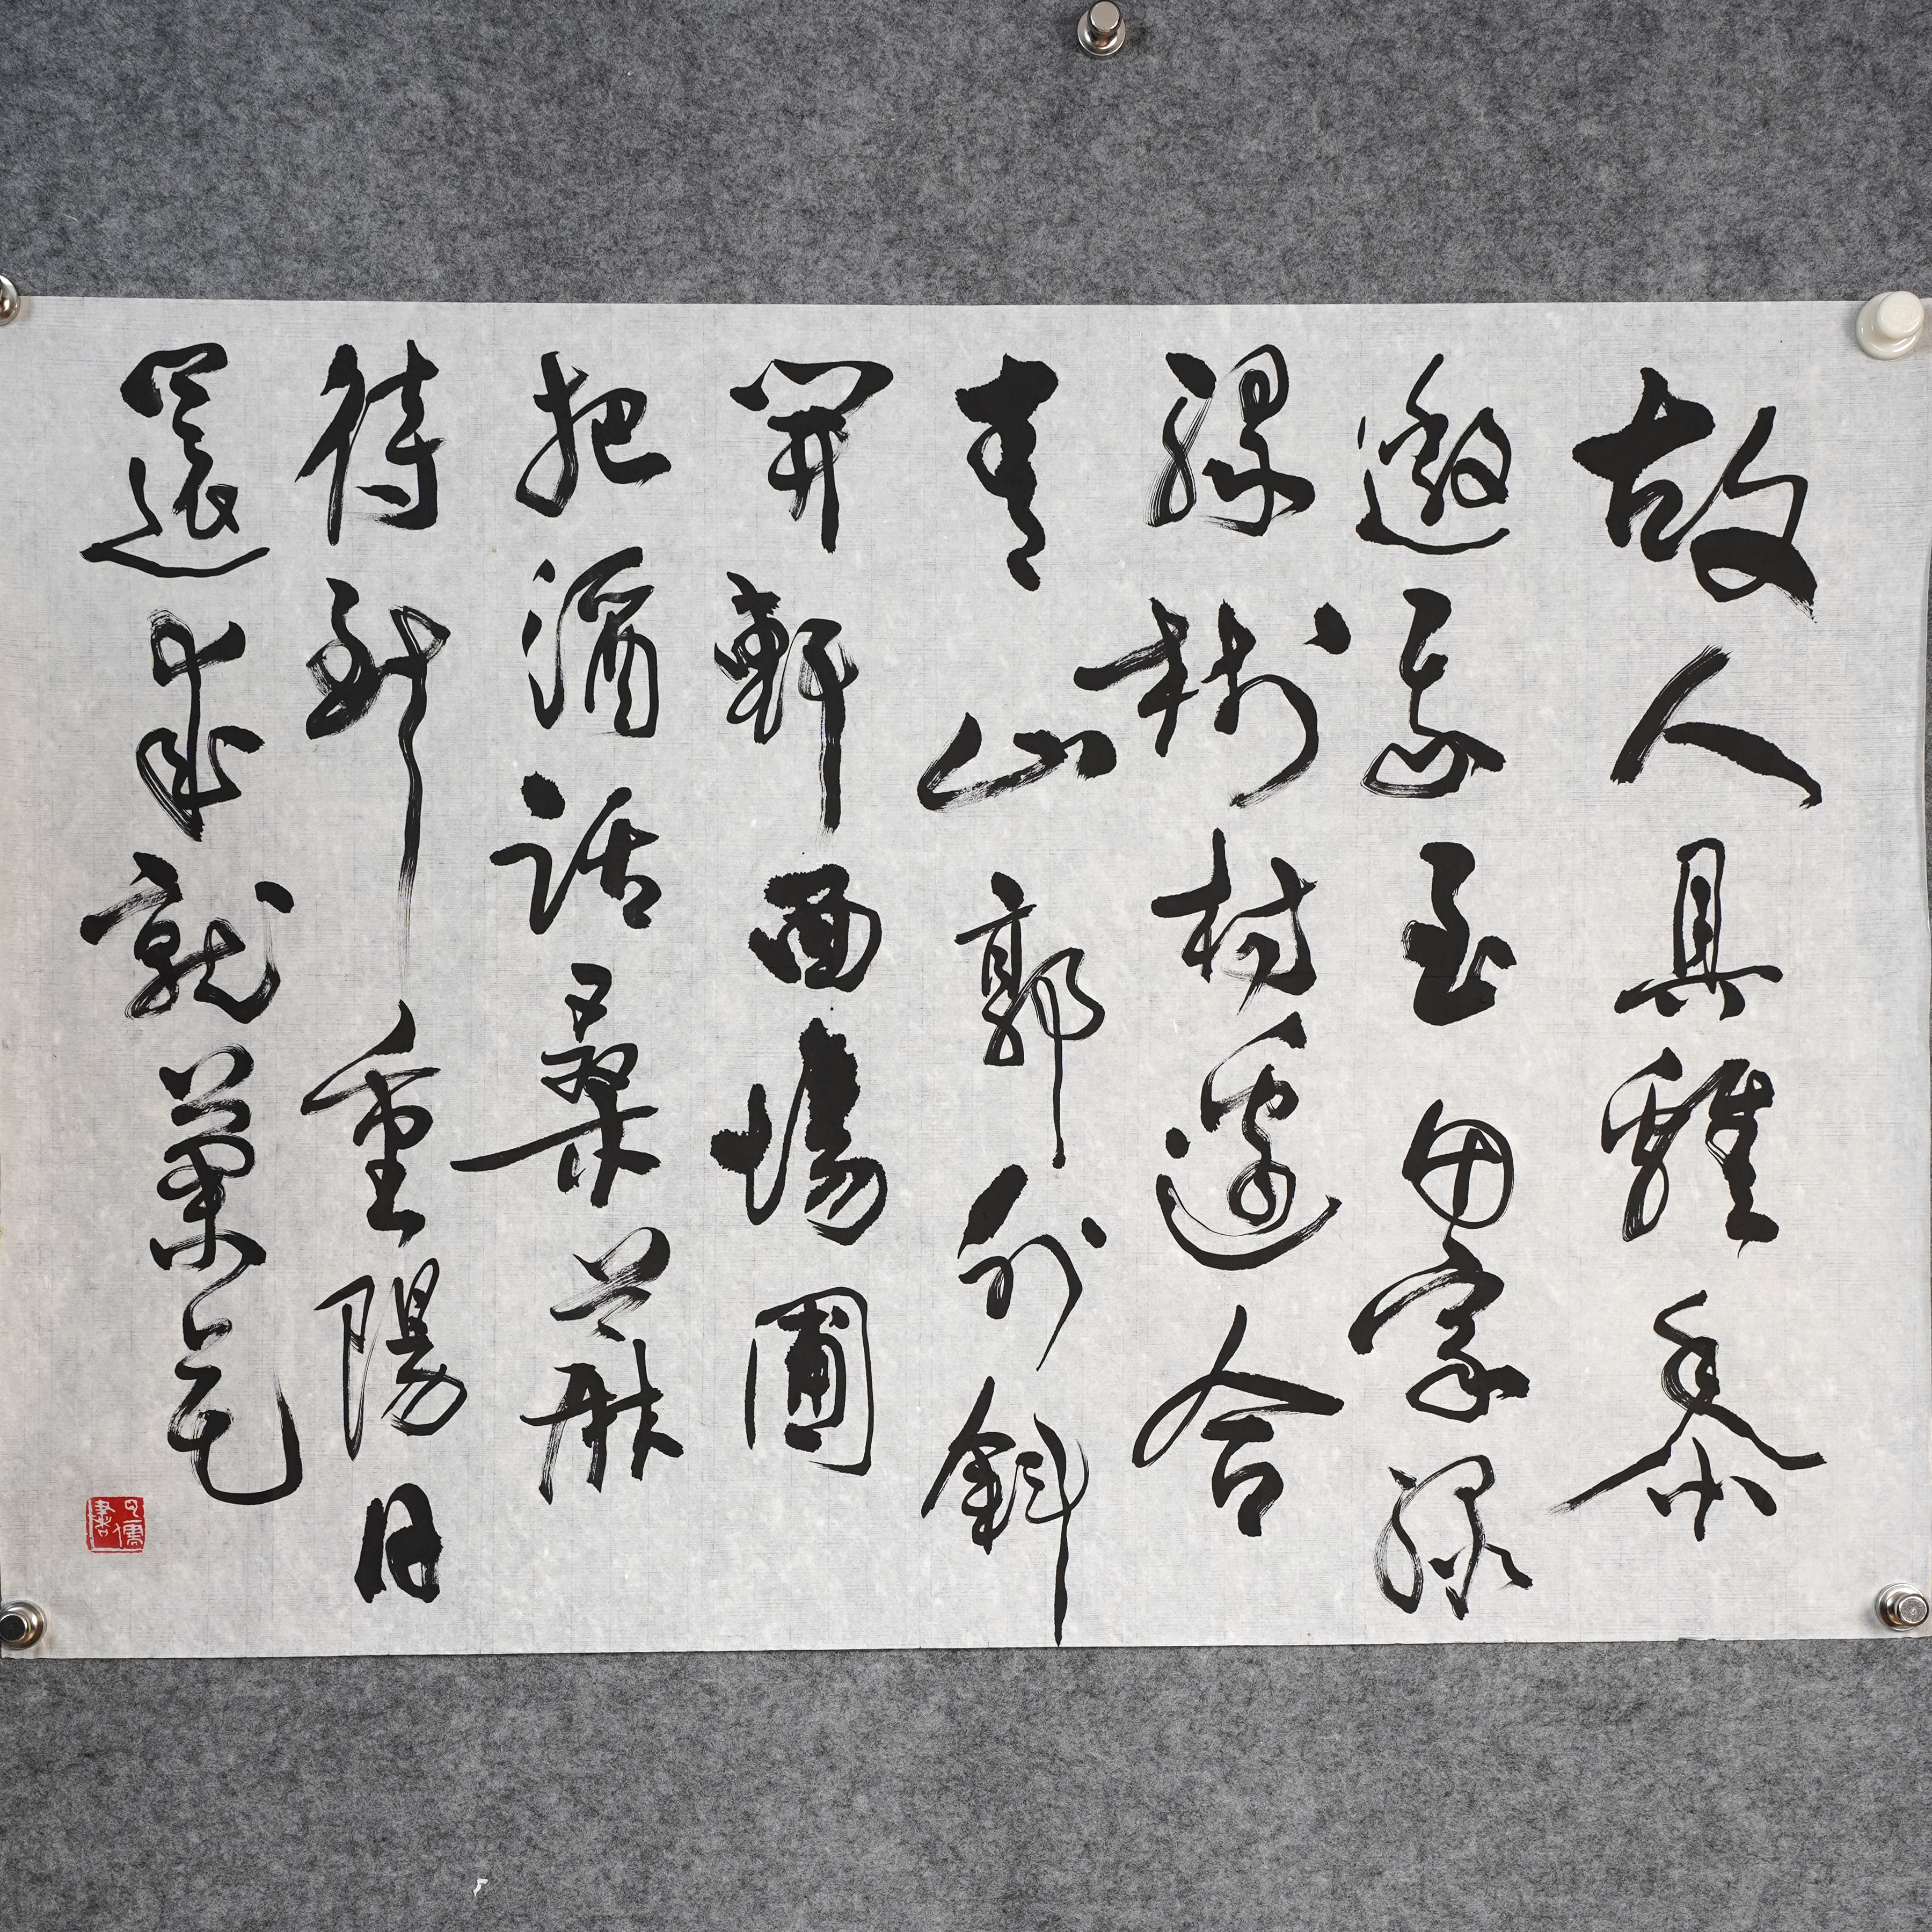 故人具雞黍
邀我至田家綠
綠樹村邊合
青山郭外斜
開軒面場圃
把酒話桑麻
待到重陽日
還來就菊花